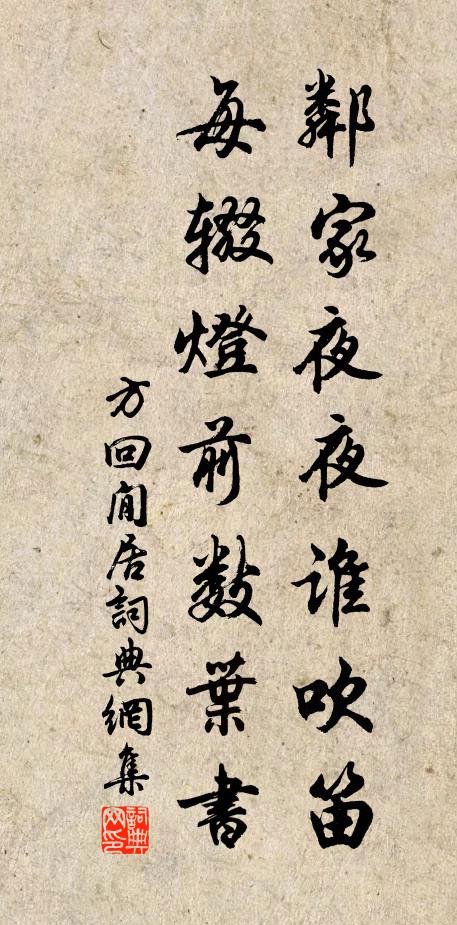 鄰家夜夜谁吹笛
每辍燈前数葉書
方回閒居詞典網集
詞典网印